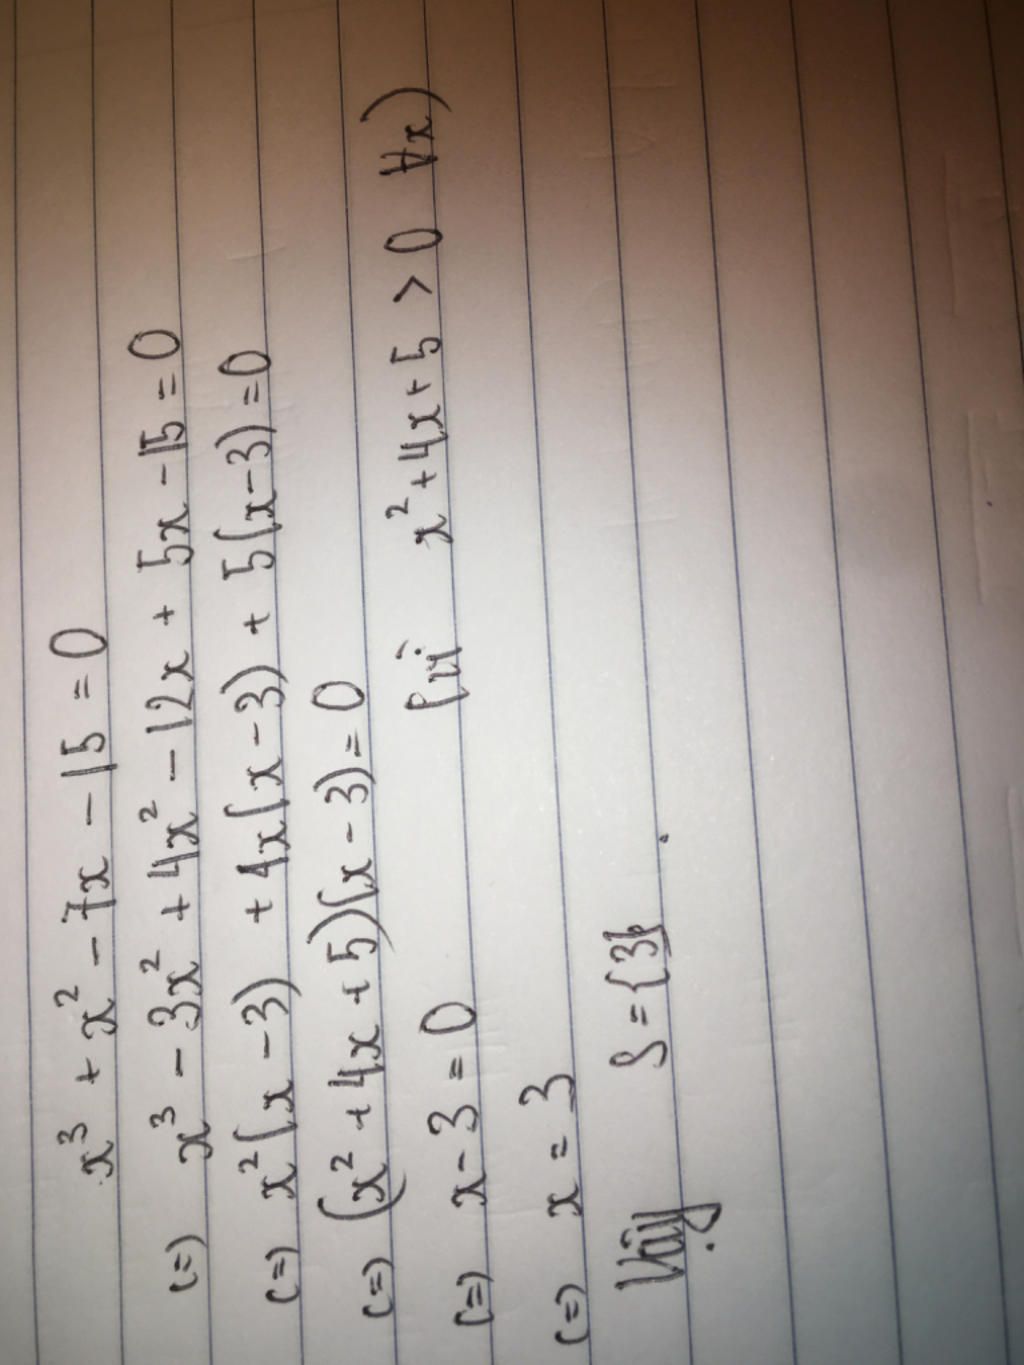 x³ + x² - 7x - 15 = 0
(=) x³ - 3x² + 4x² - 12x + 5x - 15 = 0
(=) x²(x - 3) + 4x(x - 3) + 5(x - 3) = 0
(=) (x² + 4x + 5)(x - 3) = 0
(=) x - 3 = 0 (vì x² + 4x + 5 > 0 ∀x)
(=) x = 3
Vậy S = {3}.